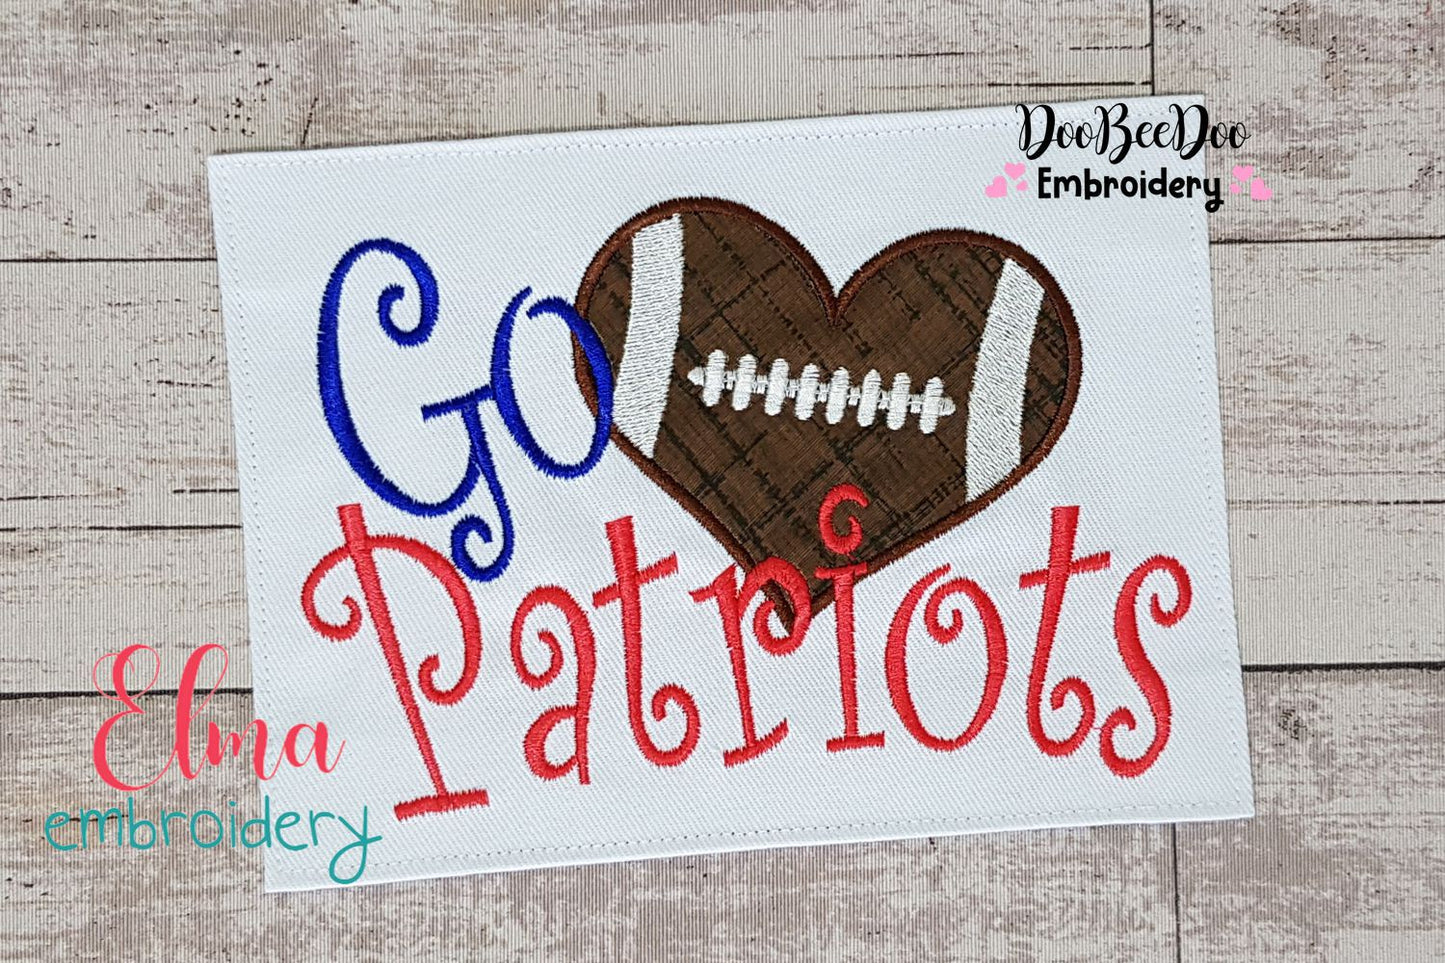 DooBeeDoo
Embroidery
Go
Patriots
Elma
embroidery